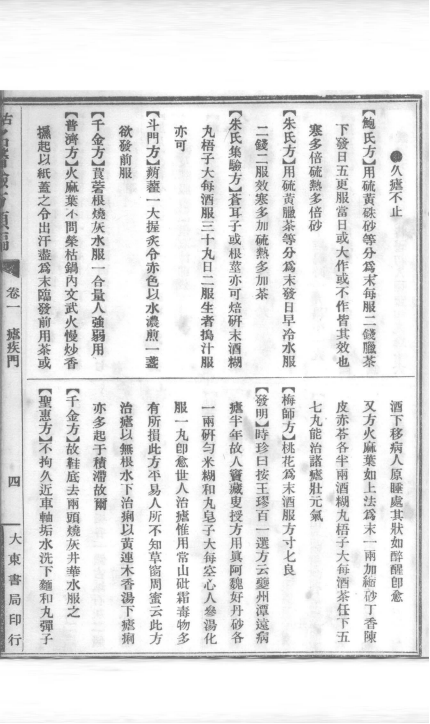 ●久瘧不止
【鮑氏方】用硫黃硃砂等分爲末每服二錢臘茶
下發日五更服當日或大作或不作皆其效也
寒多倍硫熱多倍砂
【朱氏方】用硫黃臘茶等分爲末發日早冷水服
二錢二服效寒多加硫熱多加茶
【朱氏集驗方】蒼耳子或根莖亦可焙硏末酒糊
丸梧子大每酒服三十丸日二服生者搗汁服
亦可
【斗門方】蒴藋一大握炙令赤色以水濃煎一盞
欲發前服
【千金方】莨菪根燒灰水服一合量人強弱用
【普濟方】火麻葉不問榮枯鍋內文武火慢炒香
攤起以紙蓋之令出汗盡爲末臨發前用茶或
酒下移病人原睡處其狀如醉醒卽愈
又方火麻葉如上法爲末一兩加縮砂丁香陳
皮赤苓各半兩酒糊丸梧子大每酒茶任下五
七丸能治諸瘧壯元氣
【梅師方】桃花爲末酒服方寸七良
【發明】時珍曰按王璆百一選方云夔州譚遠病
瘧半年故人竇藏叟授方用眞阿魏好丹砂各
一兩硏勻米糊和丸皂子大每空心人參湯化
服一丸卽愈世人治瘧惟用常山砒霜毒物多
有所損此方平易人所不知草窗周蜜云此方
治瘧以無根水下治痢以黃連木香湯下瘧痢
亦多起于積滯故爾
【千金方】故鞋底去兩頭燒灰井華水服之
【聖惠方】不拘久近車軸垢水洗下麵和丸彈子
卷一
瘧疾門
四
大東書局印行